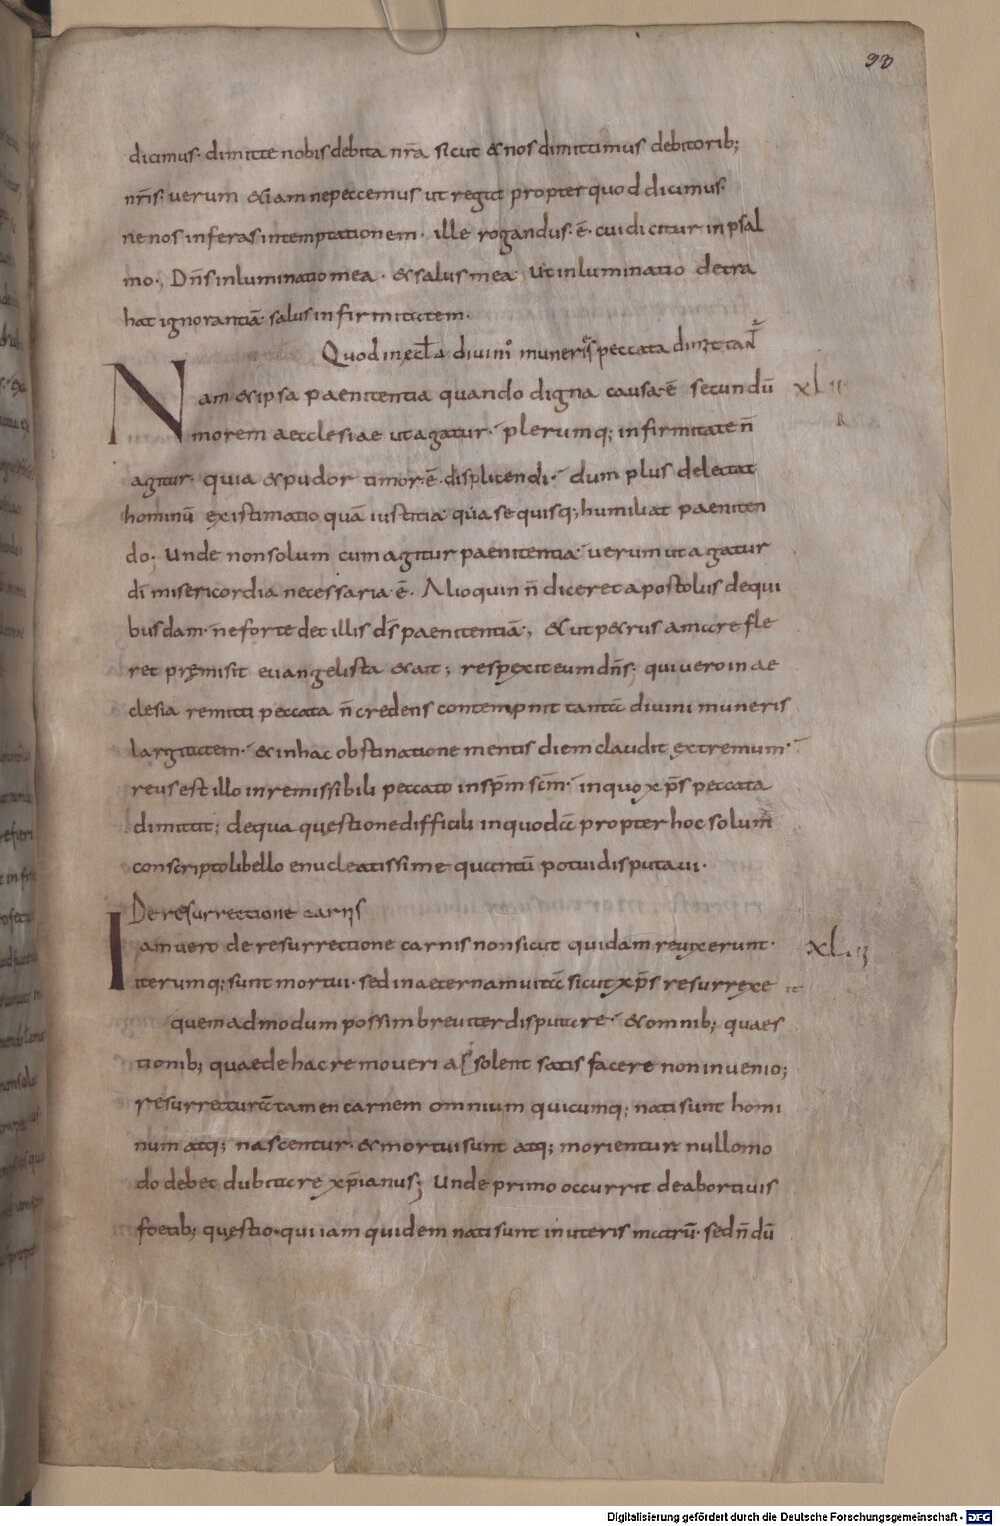 90
dicimus· dimitte nobis debita nr̄a sicut & nos dimittimus debitorib;
nr̄is· uerum &iam ne peccemus ut regat propter quod dicimus·
ne nos inferas in temptationem· ille rogandus·ē· cui dicitur in psal
mo·, Dn̄s inluminatio mea· & salus mea· Ut inluminatio detra
hat ignorantiā· salus infirmitatem·
Quod in eccl̄a diuini muneris peccata
Nam & ipsa paenitentia quando digna causa·ē secundū
xLII
R
morem aecclesiae ut agatur· plerumq; infirmitate n̄
agitur· quia & pudor timor·ē· displicendi· dum plus delectat
hominū existimatio quā iustitia qua se quisq; humiliat paeniten
do; Unde non solum cum agitur paenitentia· uerum ut agatur
dī misericordia necessaria·ē· Alioquin n̄ diceret apostolus de qui
busdam· ne forte det illis ds̄ paenitentiā; & ut p&rus amare fle
ret pręmisit euangelista & ait; respexit eum dn̄s; qui uero in ae
clesia remitti peccata n̄ credens contempnit tantā diuini muneris
largitatem· & in hac obstinatione mentis diem claudit extremum·
reus est illo inremissibili peccato in sp̄m sc̄m· in quo xp̄s peccata
dimittit; de qua questione difficili in quodā propter hoc solum
conscripto libello enucleatissime quantū potui disputaui·
De resurrectione carnis
Iam uero de resurrectione carnis non sicut quidam reuixerunt·
XLIII
iterumq; sunt mortui· sed in aeternam uitā sicut xp̄s resurrexe it
quemadmodum possim breuiter disputare· & omnib; quaes
tionib; quae de hac re moueri as solent satis facere non inuenio;
resurrecturā tamen carnem omnium quicumq; nati sunt homi
num atq; nascentur· & mortui sunt atq; morientur nullo mo
do debet dubitare xp̄ianus; Unde primo occurrit de abortiuis
foetib; questio· qui iam quidem nati sunt in uteris matrū· sed n̄dū
Digitalisierung gefördert durch die Deutsche Forschungsgemeinschaft - DFG